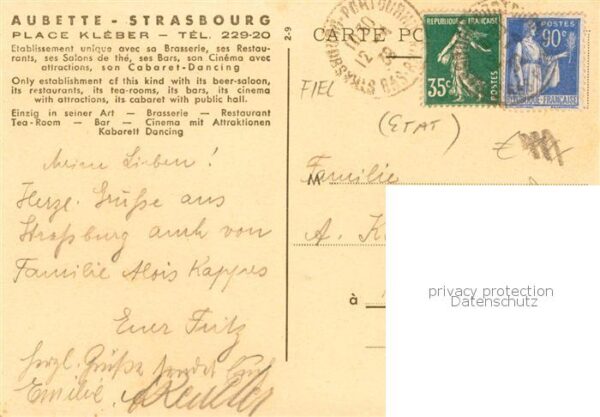 AUBETTE - STRASBOURG
PLACE KLÉBER — TÉL. 229-20
Etablissement unique avec sa Brasserie, ses Restau-
rants, ses Salons de thé, ses Bars, son Cinéma avec
attractions, son Cabaret-Dancing
Only establishment of this kind with its beer-saloon,
its restaurants, its tea-rooms, its bars, its cinema
with attractions, its cabaret with public hall.
Einzig in seiner Art — Brasserie — Restaurant
Tea-Room — Bar — Cinema mit Attraktionen
Kabarett Dancing
Meine Lieben!
Herzl. Grüße aus
Straßburg auch von
Familie Alois Kappes
Euer Fritz
herzl. Grüße sendet Euch
Emilie
2-9
CARTE PO
RÉPUBLIQUE FRANÇAISE
35c
POSTES
POSTES
90c
FIEL
(ETAT)
M
Familie
A. K
à
privacy protection
Datenschutz